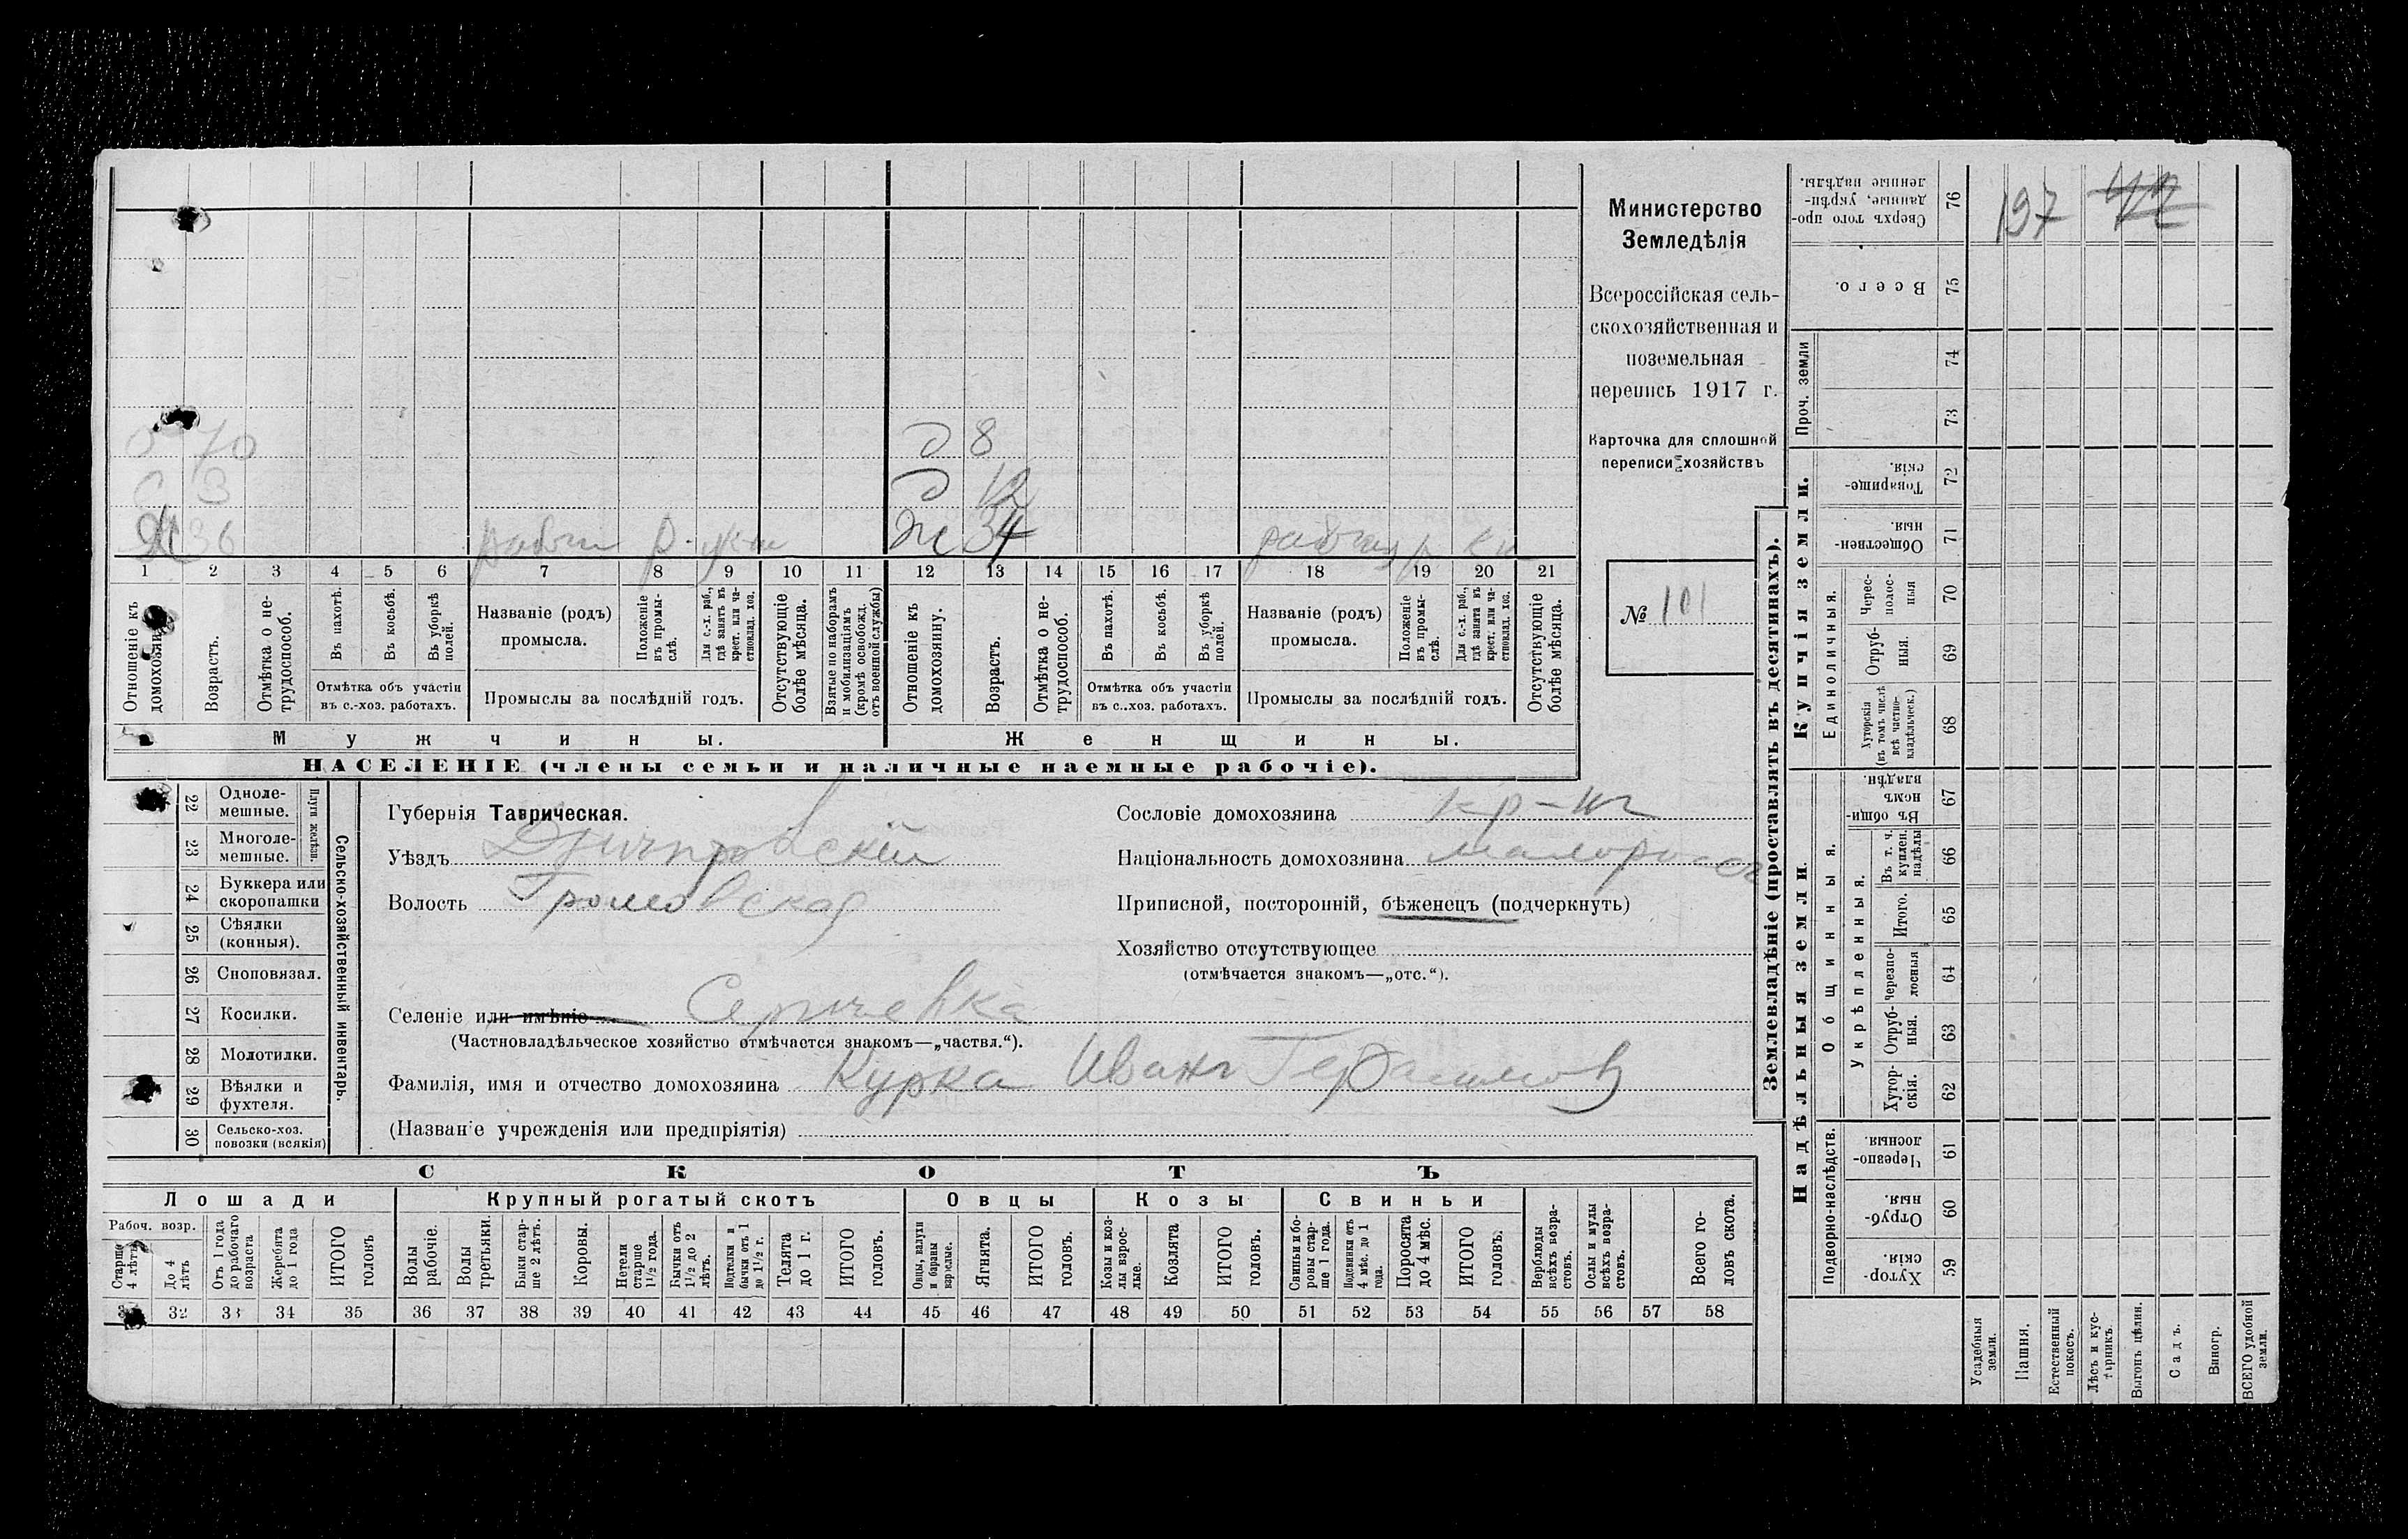 Министерство
Земледѣлія
Всероссійская сель-
скохозяйственная и
поземельная
перепись 1917 г.
Карточка для сплошной
переписи хозяйствъ
№ 101
О 70
С 3
36 рабоч р.
д 8
д 12
Ж 34 рабочая р
1 2 3 4 5 6 7 8 9 10 11 12 13 14 15 16 17 18 19 20 21
Отношеніе къ домохозяину.
Возрастъ.
Отмѣтка о не-
трудоспособ.
Въ пахотѣ.
Въ косьбѣ.
Въ уборкѣ
полей.
Отмѣтка объ участіи
въ с.-хоз. работахъ.
Названіе (родъ)
промысла.
Положеніе
въ промы-
слѣ.
Для с.-х. раб.,
гдѣ занятъ въ
крест. или ча-
стновлад. хоз.
Промыслы за послѣдній годъ.
Отсутствующіе
болѣе мѣсяца.
Взятые по наборамъ
и мобилизаціямъ
(кромѣ освобожд.
отъ военной службы)
Отношеніе къ
домохозяину.
Возрастъ.
Отмѣтка о не-
трудоспособ.
Въ пахотѣ.
Въ косьбѣ.
Въ уборкѣ
полей.
Отмѣтка объ участіи
въ с..хоз. работахъ.
Названіе (родъ)
промысла.
Положеніе
въ промы-
слѣ.
Для с.-х. раб.,
гдѣ занятъ въ
крест. или ча-
стновлад. хоз.
Промыслы за послѣдній годъ.
Отсутствующіе
болѣе мѣсяца.
Мужчины.
Женщины.
НАСЕЛЕНІЕ (члены семьи и наличные наемные рабочіе).
22 Одноле-
мешные.
23 Многоле-
мешные.
Плуги желѣзн.
24 Буккера или
скоропашки
25 Сѣялки
(конныя).
26 Сноповязал.
27 Косилки.
28 Молотилки.
29 Вѣялки и
фухтеля.
30 Сельско-хоз.
повозки (всякія)
Сельско-хозяйственный инвентарь.
Губернія Таврическая.
Уѣздъ Днѣпровскій
Волость Громовская
Селеніе или имѣніе Сергѣевка
(Частновладѣльческое хозяйство отмѣчается знакомъ—„частвл.“).
Фамилія, имя и отчество домохозяина Курка Иванъ Герасимов
(Названіе учрежденія или предпріятія)
Сословіе домохозяина кр-нъ
Національность домохозяина малоросъ
Приписной, посторонній, бѣженецъ (подчеркнуть)
Хозяйство отсутствующее
(отмѣчается знакомъ—„отс.“).
СКОТЪ
Лошади
Крупный рогатый скотъ
Овцы
Козы
Свиньи
Рабоч. возр.
Старше
4 лѣтъ
До 4
лѣтъ
Отъ 1 года
до рабочаго
возраста
Жеребята
до 1 года
ИТОГО
головъ
Волы
рабочіе.
Волы
третьяки.
Быки стар-
ше 2 лѣтъ.
Коровы.
Нетели
старше
1½ года.
Бычки отъ
1½ до 2
лѣтъ.
Подтелки и
бычки отъ 1
до 1½ г.
Телята
до 1 г.
ИТОГО
головъ.
Овцы, валухи
и бараны
взрослые.
Ягнята.
ИТОГО
головъ.
Козы и коз-
лы взрос-
лые.
Козлята
ИТОГО
головъ.
Свиньи и бо-
ровы стар-
ше 1 года.
Подсвинки отъ
4 мѣс. до 1
года.
Поросята
до 4 мѣс.
ИТОГО
головъ.
Верблюды
всѣхъ возра-
стовъ.
Ослы и мулы
всѣхъ возра-
стовъ.
Всего го-
ловъ скота.
32 33 34 35 36 37 38 39 40 41 42 43 44 45 46 47 48 49 50 51 52 53 54 55 56 57 58
Землевладѣніе (проставлять въ десятинахъ).
Купчія земли.
Надѣльныя земли.
76 Сверхъ того про-
данные, укрѣп-
ленные надѣлы.
197
75 Всего.
Проч. земли
74
73
72 Товарище-
скія.
71 Обществен-
ныя.
Единоличныя.
70 Черес-
полос-
ныя
69 Отруб-
ныя.
68 Хуторскія
(въ томъ числѣ
всѣ частно-
владѣльческ.)
Общинныя.
67 Въ общин-
номъ
владѣн.
Укрѣпленныя.
66 Въ т. ч.
куплен.
надѣлы
65 Итого.
64 Черезпо-
лосныя
63 Отруб-
ныя.
62 Хутор-
скія.
Подворно-наслѣдств.
61 Черезпо-
лосныя.
60 Отруб-
ныя.
59 Хутор-
скія.
Усадебныя
земли.
Пашня.
Естественный
покосъ.
Лѣсъ и кус-
тарникъ.
Выгонъ цѣлин.
Садъ.
Виногр.
ВСЕГО удобной
земли.